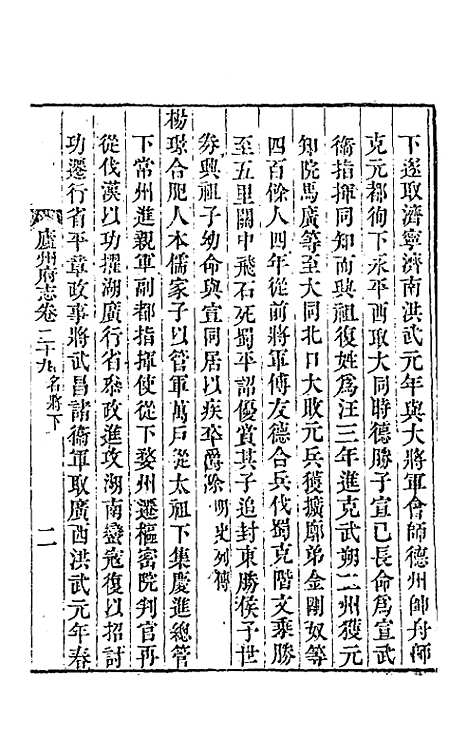 下遂取濟寧濟南洪武元年與大將軍會師德州帥舟師
克元都徇下永平西取大同時德勝子宣已長命爲宣武
衞指揮同知而興祖復姓爲汪三年進克武朔二州獲元
知院馬廣等至大同北口大敗元兵獲擴廓弟金剛奴等
四百餘人四年從前將軍傅友德合兵伐蜀克階文乘勝
至五里關中飛石死蜀平詔優賞其子追封東勝侯予世
券興祖子幼命與宣同居以疾卒爵除明史列傳
楊璟合肥人本儒家子以管軍萬戶從太祖下集慶進總管
下常州進親軍副都指揮使從下婺州遷樞密院判官再
從伐漢以功擢湖廣行省叅政進攻湖南蠻寇復以招討
功遷行省平章政事將武昌諸衞軍取廣西洪武元年春
廬州府志卷二十九 名將下 二